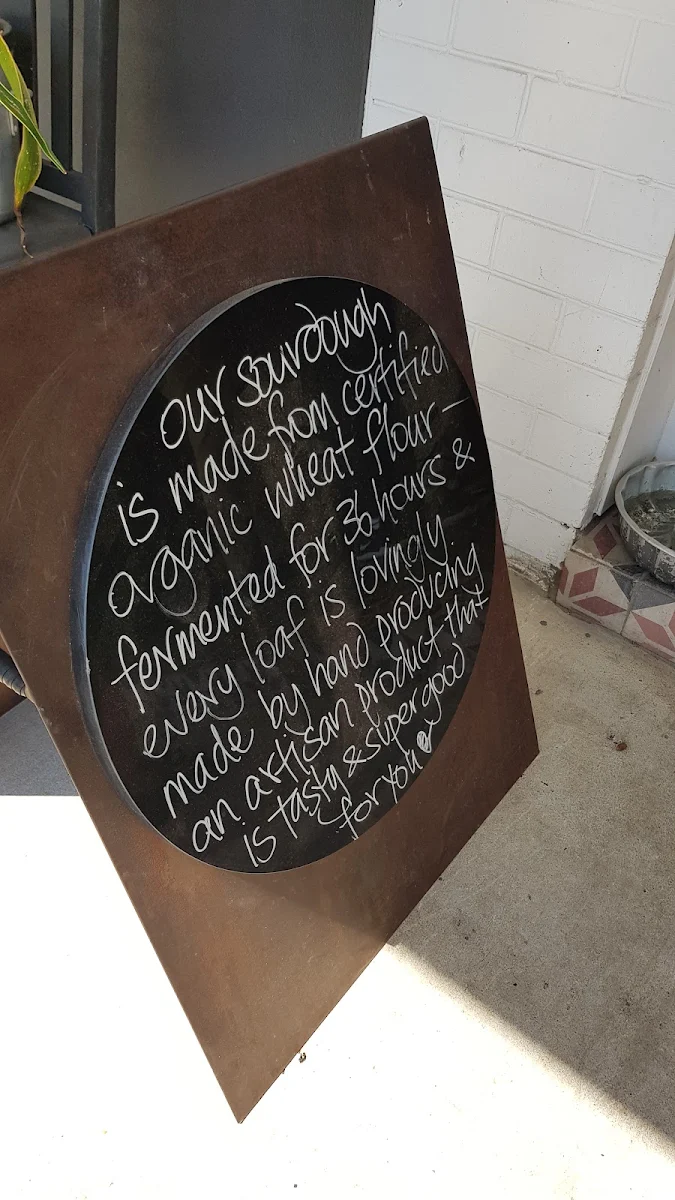 our sourdough
is made from certified
organic wheat flour —
fermented for 36 hours &
every loaf is lovingly
made by hand producing
an artisan product that
is tasty & super good
for you